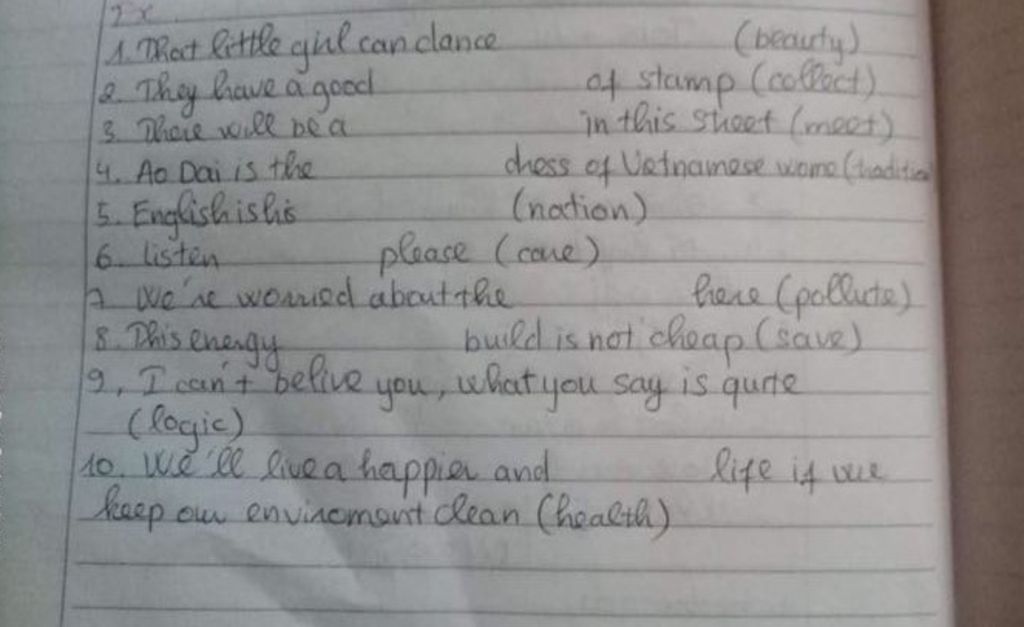 1. That little girl can dance (beauty)
2. They have a good of stamp (collect)
3. There will be a in this street (meet)
4. Ao Dai is the dress of Vetnamese wome (tradition
5. English is his (nation)
6. listen please (care)
7. We're worried about the here (pollute)
8. This energy build is not cheap (save)
9, I can't belive you, what you say is quite
(logic)
10. We'll live a happier and life if we
keep our enviroment clean (health)